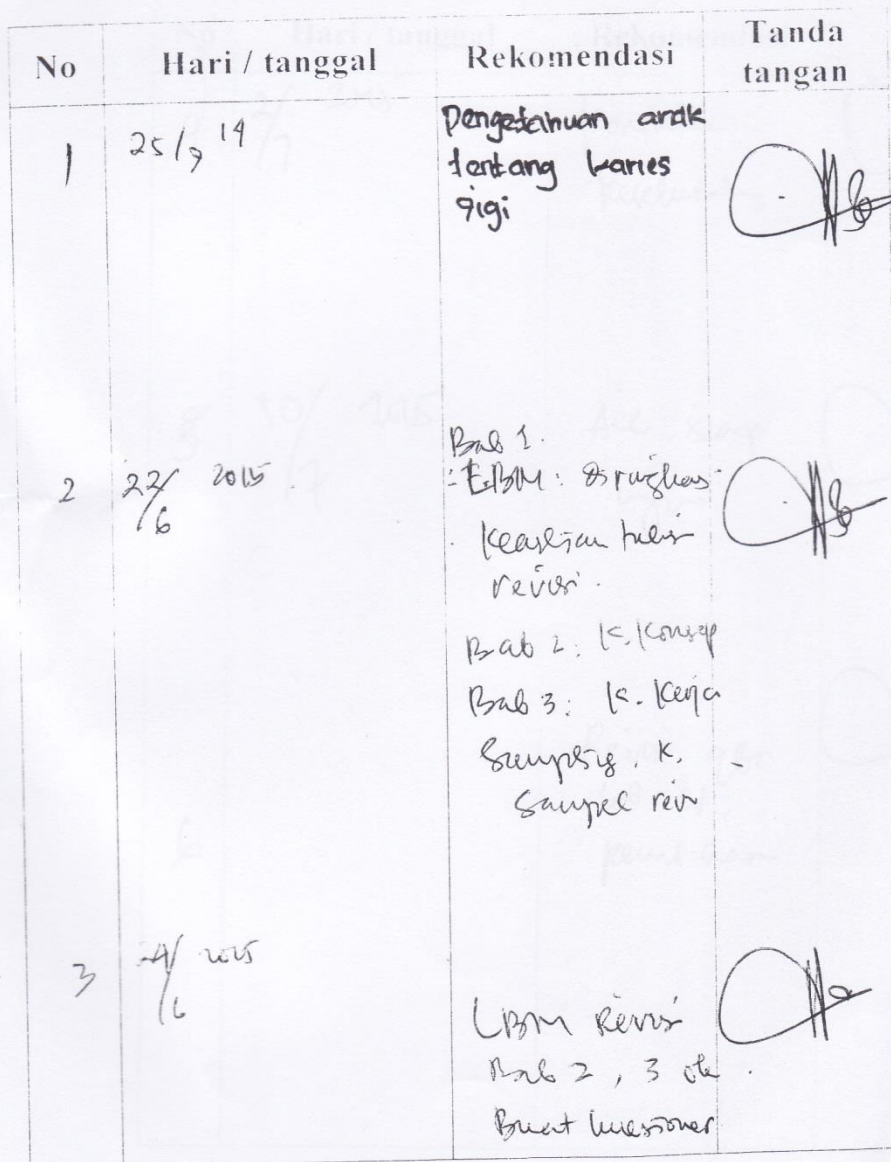 No Hari / tanggal Rekomendasi Tanda tangan
1 25/7 14 Pengetahuan anak
tentang karies
gigi
Bab 1.
2 22/6 2015 LBM: diringkas
Keaslian
revisi.
Bab 2: K. Konsep
Bab 3: K. Kerja
Sampling, K.
Sampel revisi
3 24/6 2015
LBM Revisi
Bab 2, 3 ok.
Buat kuesioner